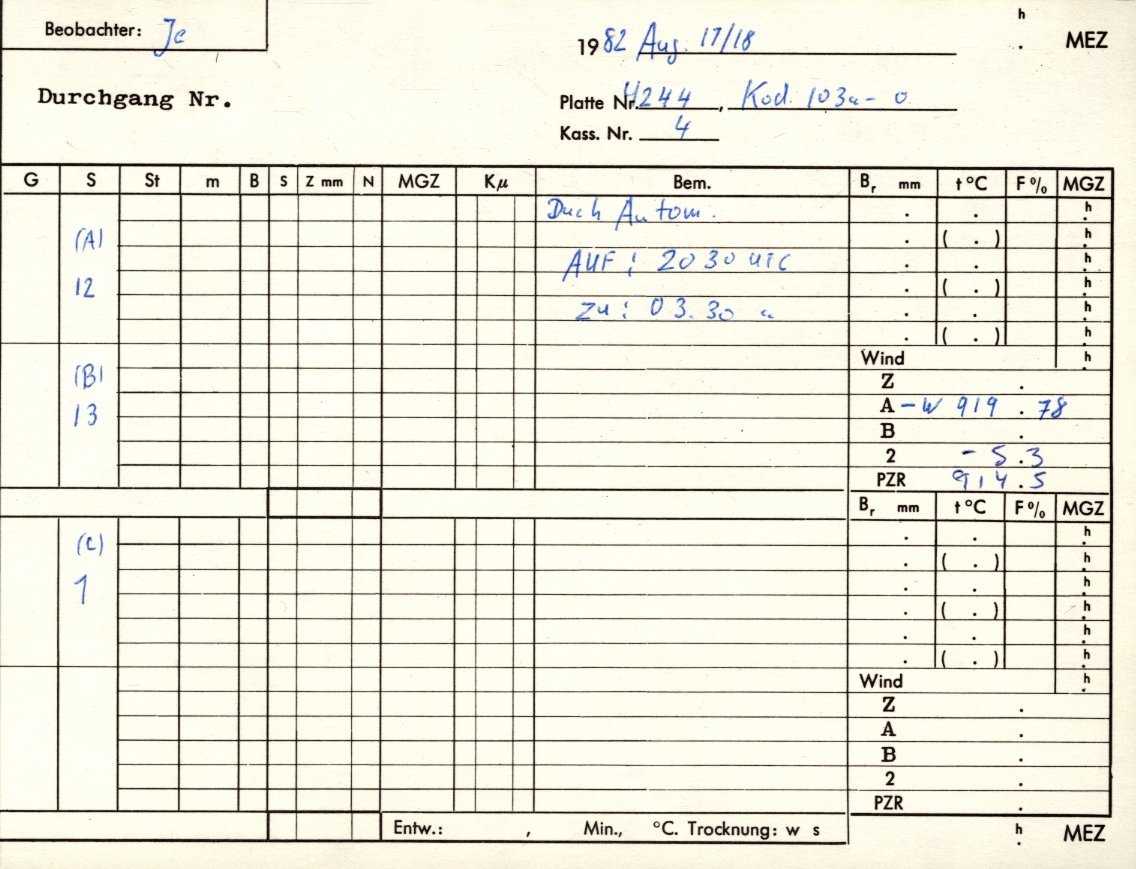 Beobachter: Je
h
1982 Aug. 17/18 . MEZ
Durchgang Nr.
Platte Nr. 4244 , Kod. 103a-o
Kass. Nr. 4
G S St m B S Z mm N MGZ Kμ Bem. Br mm t°C F% MGZ
Duch Autom. . . h.
(A) . ( . ) h.
AUF : 2030 UTC . . h.
12 . ( . ) h.
zu : 03.30 " . . h.
. ( . ) h.
Wind h.
(B) Z .
13 A -W 919 . 78
B .
2 - 5.3
PZR 914.5
Br mm t°C F% MGZ
. . h.
(C) . ( . ) h.
1 . . h.
. ( . ) h.
. . h.
. ( . ) h.
Wind h.
Z .
A .
B .
2 .
PZR .
Entw.: , Min., °C. Trocknung: w s h. MEZ